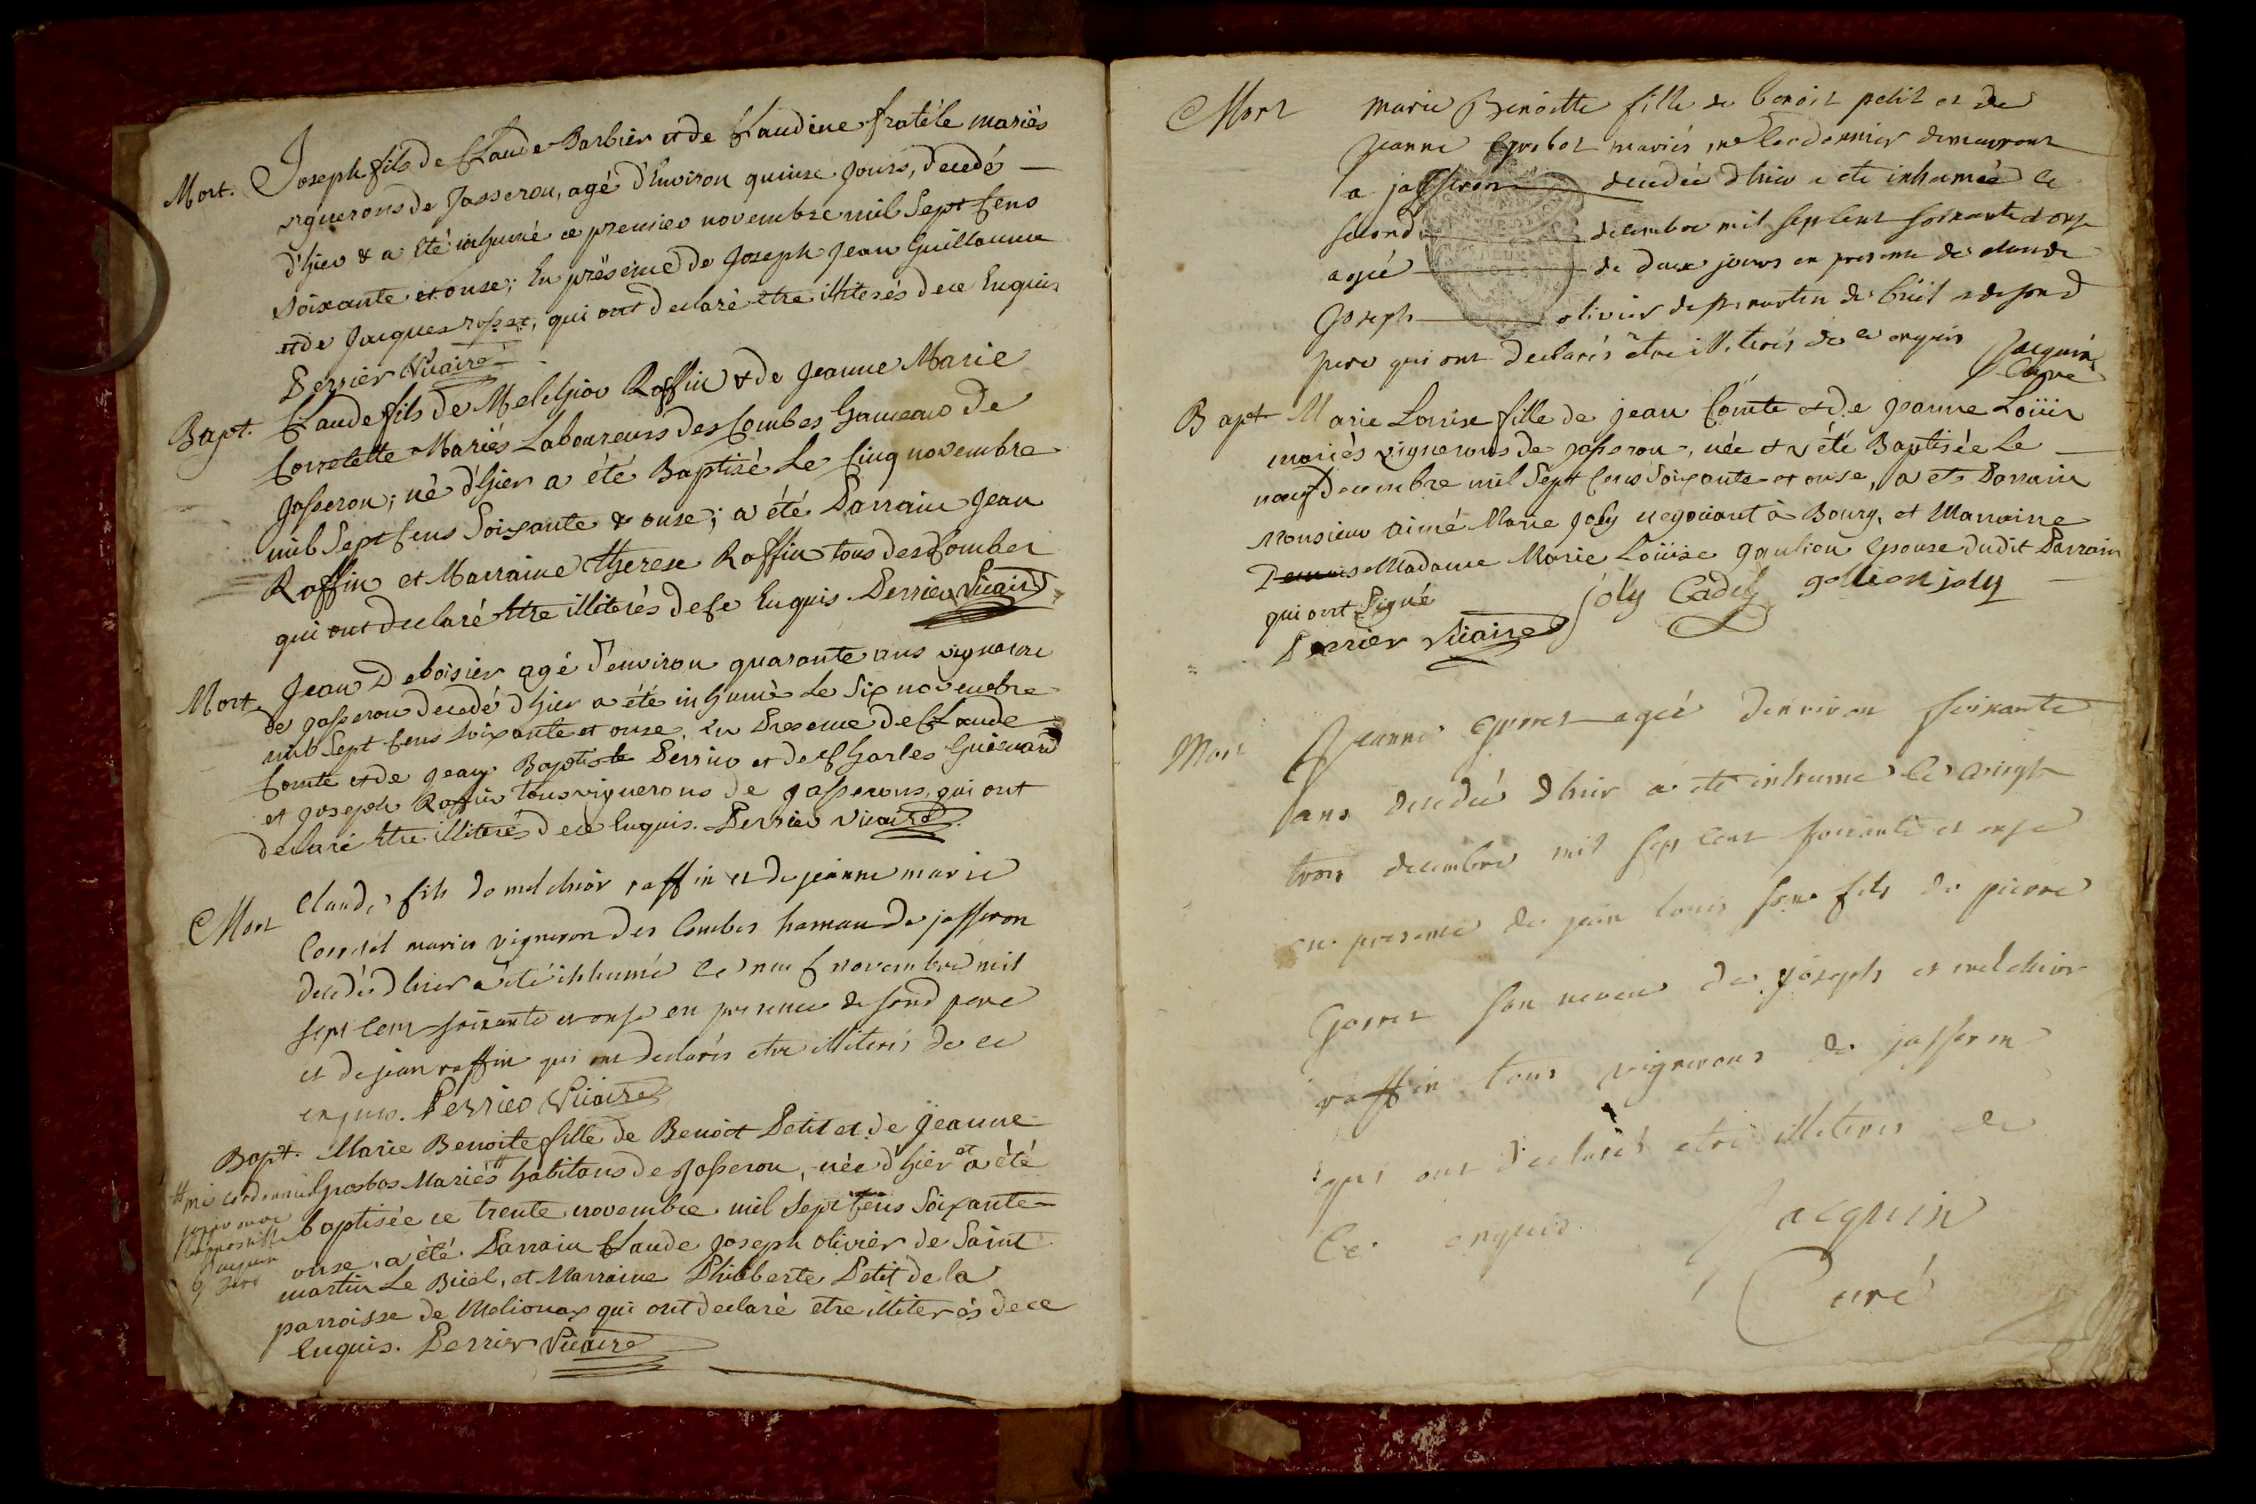 Mort. Joseph fils de Claude Barbier et de Claudine fratéle mariés
vignerons de Jasseron, agé d'Environ quinse jours, decedé
d'hier & a été inhumé ce premier novembre mil Sept Cens
soixante et onse; En présence de Joseph Jean Guillaume
et de Jacques rosset, qui ont declaré être illiterés de ce Enquis
Perrier Vicaire
Bapt. Claude fils de Melchior Raffin & de Jeanne Marie
Corretette Mariés Laboureurs des Combes hameau de
Jasseron; né d'hier a été Baptisé Le Cinq novembre
mil Sept Cens Soixante & onse; a été Parrain Jean
Raffin et Marraine therese Raffin tous des Combes
qui ont declaré Etre illiterés de Ce Enquis. Perrier Vicaire
Mort. Jean Deboisier agé d'environ quarante ans vigneron
de Jasseron decedé d'hier a été inhumé Le Six novembre
mil Sept Cens soixante et onse, En Presence de Claude
Comte et de Jean Baptiste Perrier et de Charles Guienard
et Joseph Raffin tous vignerons de Jasseron, qui ont
declaré Etre illiterés de ce Enquis. Perrier Vicaire
Mort Claude fils de melchior raffin et de jeanne marie
Corretel mariés vigneron des Combes hameau de jasseron
decedé d'hier a été inhumé le neuf novembre mil
sept cent soixante et onse en presence de sond pere
et de jean raffin qui ont declarés etre illiterés de ce
enquis. Perrier Vicaire
Bapt. Marie Benoite fille de Benoit Petit et de Jeanne
Grosbos Mariés # habitans de Jasseron, née d'hier et a été
# me cordonnier
baptisée ce trente novembre mil Sept Cens Soixante
onse, a été Parrain Claude Joseph olivier de Saint
martin Le Buël, et Marraine Philiberte Petit de la
parroisse de Melionas qui ont declaré etre illiterés de ce
Enquis. Perrier Vicaire
Mort Marie Benoitte fille de benoit petit et de
Jeanne Grobot mariés me Cordonnier demeurant
a jasseron decedée d'hier a été inhumée le
second decembre mil sept cent soixante et onse
agée de deux jours en presence de claude
Joseph olivier de st martin de büel et de son d
pere qui ont declarés être illiterés de ce enquis Jacquin
Curé
Bapt Marie Louise fille de Jean Comte et de Jeanne Loüis
mariés vignerons de Jasseron, née et a été Baptisée Le
neuf Decembre mil Sept Cens Soixante et onse, a été Parrain
Monsieur aimé Marie Joly negociant à Bourg, et Marraine
Madame Marie Loüise gaulion Epouse dudit Parrain
qui ont Signé joly Cadet gollion joly
Perrier Vicaire
Mort Jeanne agée d'environ soixante
ans decedée d'hier a été inhumé le vingt
trois decembre mil sept cent soixante et onse
en presence de jean louis fils de pierre
son neveu de joseph et melchior
raffin tous vignerons de jasseron
qui ont declarés etre illiterés de
Ce enquis Jacquin
Curé